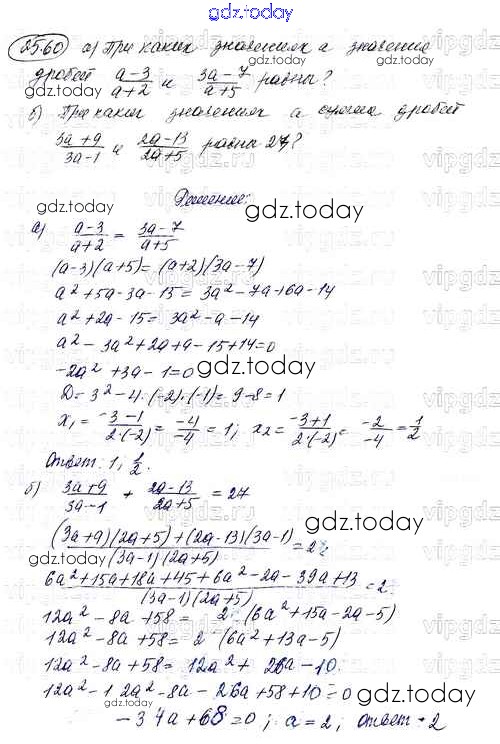 gdz.today
2560 а) При каких значениях а значение
дробей a-3/a+2 и 3a-7/a+5 равны?
б) При каких значениях а сумма дробей
3a+9/3a-1 и 2a-13/2a+5 равны 2?
Решение:
а) a-3/a+2 = 3a-7/a+5
(a-3)(a+5)=(a+2)(3a-7)
a²+5a-3a-15=3a²-7a+6a-14
a²+2a-15=3a²-a-14
a²-3a²+2a+a-15+14=0
-2a²+3a-1=0
D=3²-4·(-2)·(-1)=9-8=1
x₁=-3-1/2·(-2)=-4/-4=1; x₂=-3+1/2·(-2)=-2/-4=1/2
Ответ: 1; 1/2.
б) 3a+9/3a-1 + 2a-13/2a+5 = 2
(3a+9)(2a+5)+(2a-13)(3a-1)/(3a-1)(2a+5)=2
6a²+15a+18a+45+6a²-2a-39a+13/(3a-1)(2a+5)=2
12a²-8a+58=2(6a²+15a-2a-5)
12a²-8a+58=2(6a²+13a-5)
12a²-8a+58=12a²+26a-10.
12a²-12a²-8a-26a+58+10=0
-34a+68=0; a=2; Ответ: 2